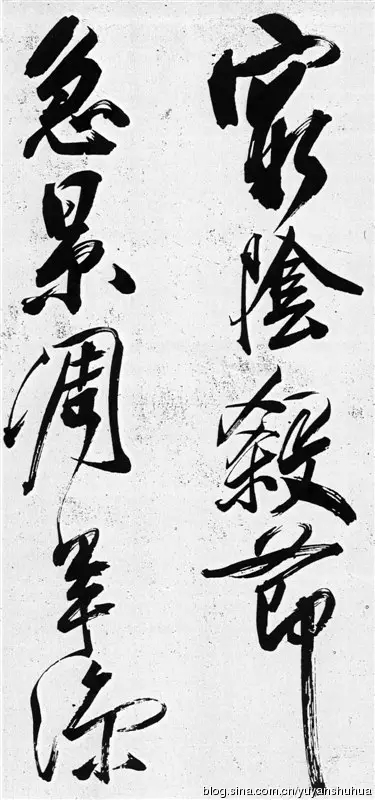 窮陰殺節
急景凋年涼
blog.sina.com.cn/yuyanshuhua